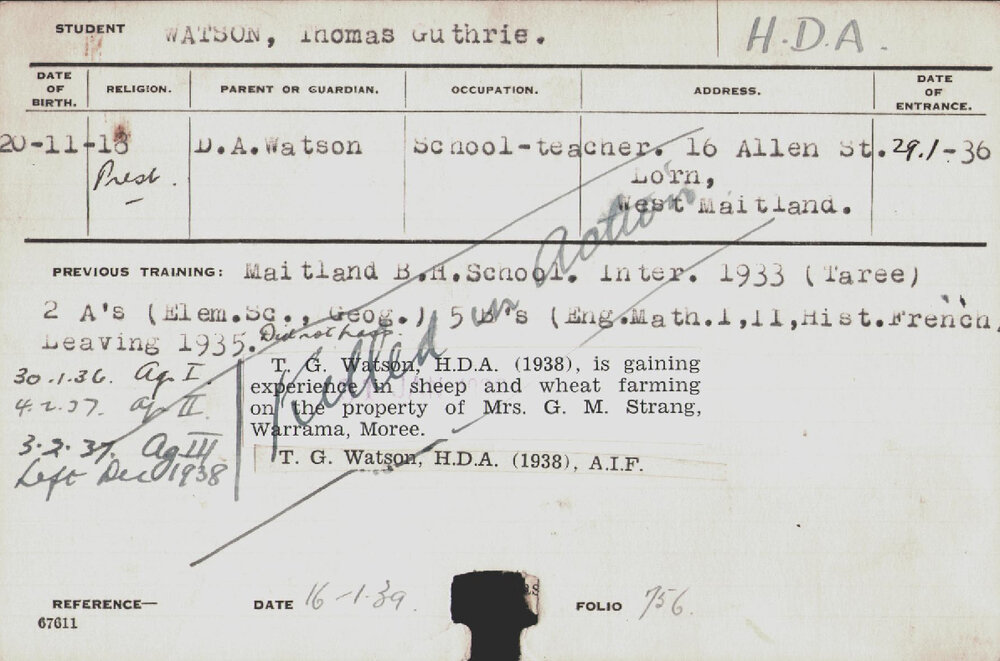 STUDENT WATSON, Thomas Guthrie. H.D.A.
DATE OF BIRTH. RELIGION. PARENT OR GUARDIAN. OCCUPATION. ADDRESS. DATE OF ENTRANCE.
20-11-18 D.A.Watson School-teacher. 16 Allen St. 29.1-36
Presb. Lorn,
West Maitland.
Killed in Action
PREVIOUS TRAINING: Maitland B.H.School. Inter. 1933 (Taree)
2 A's (Elem.Sc., Geog.) 5 B's (Eng.Math.I,II,Hist.French,
Leaving 1935. Did not pass.
30.1.36. Ag I.
4.2.37. Ag II.
3.2.37. Ag III
Left Dec 1938
T. G. Watson, H.D.A. (1938), is gaining
experience in sheep and wheat farming
on the property of Mrs. G. M. Strang,
Warrama, Moree.
T. G. Watson, H.D.A. (1938), A.I.F.
REFERENCE— DATE 16-1-39. FOLIO 756.
67611